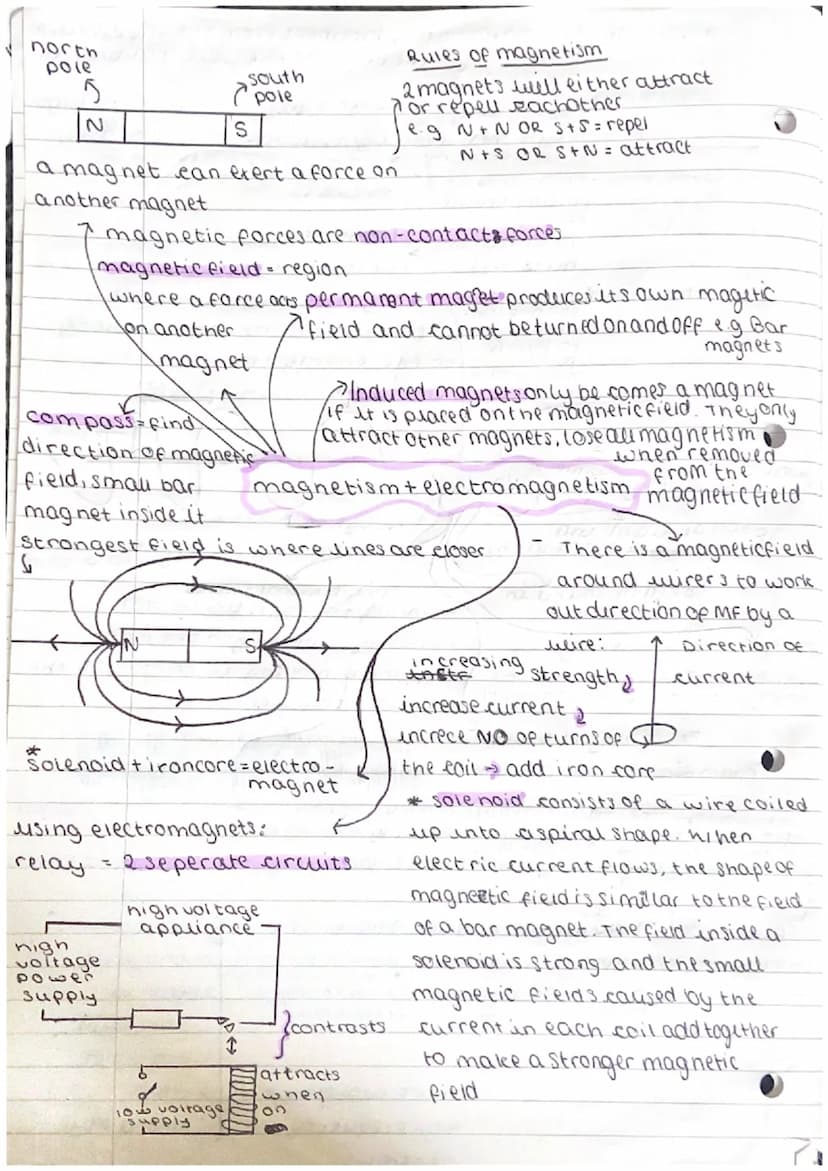 north
pole
south
pole
N
S
Rules of magnetism
2 magnets will either attract
or repell eachother
e.g N + N OR S + S = repel
N + S OR S + N = attract
a magnet can exert a force on
another magnet
magnetic forces are non-contact forces
magnetic field = region
where a force acts
on another
magnet
permanent maget produces its own magetic
field and cannot be turned on and off e.g Bar
magnets
Induced magnets only becomes a magnet
if it is placed on the magnetic field. They only
attract other magnets, lose all magnetism
when removed
from the
magnetic field
compass = find
direction of magnetic
field, small bar
magnet inside it
magnetism + electromagnetism
strongest field is where lines are closer
N
S
- There is a magnetic field
around wirers to work
out direction of MF by a
wire:
Direction of
current
increasing
strength
increase current
increce NO of turns of
the coil → add iron core
*solenoid + iron core = electro-
magnet
* solenoid consists of a wire coiled
up into a spiral shape. When
electric current flows, the shape of
magnetic field is similar to the field
of a bar magnet. The field inside a
solenoid is strong and the small
magnetic fields caused by the
current in each coil add together
to make a stronger magnetic
field
using electromagnets:
relay = 2 seperate circuits
high voltage
appliance
high
voltage
power
supply
contrasts
attracts
when
on
low voltage
supply